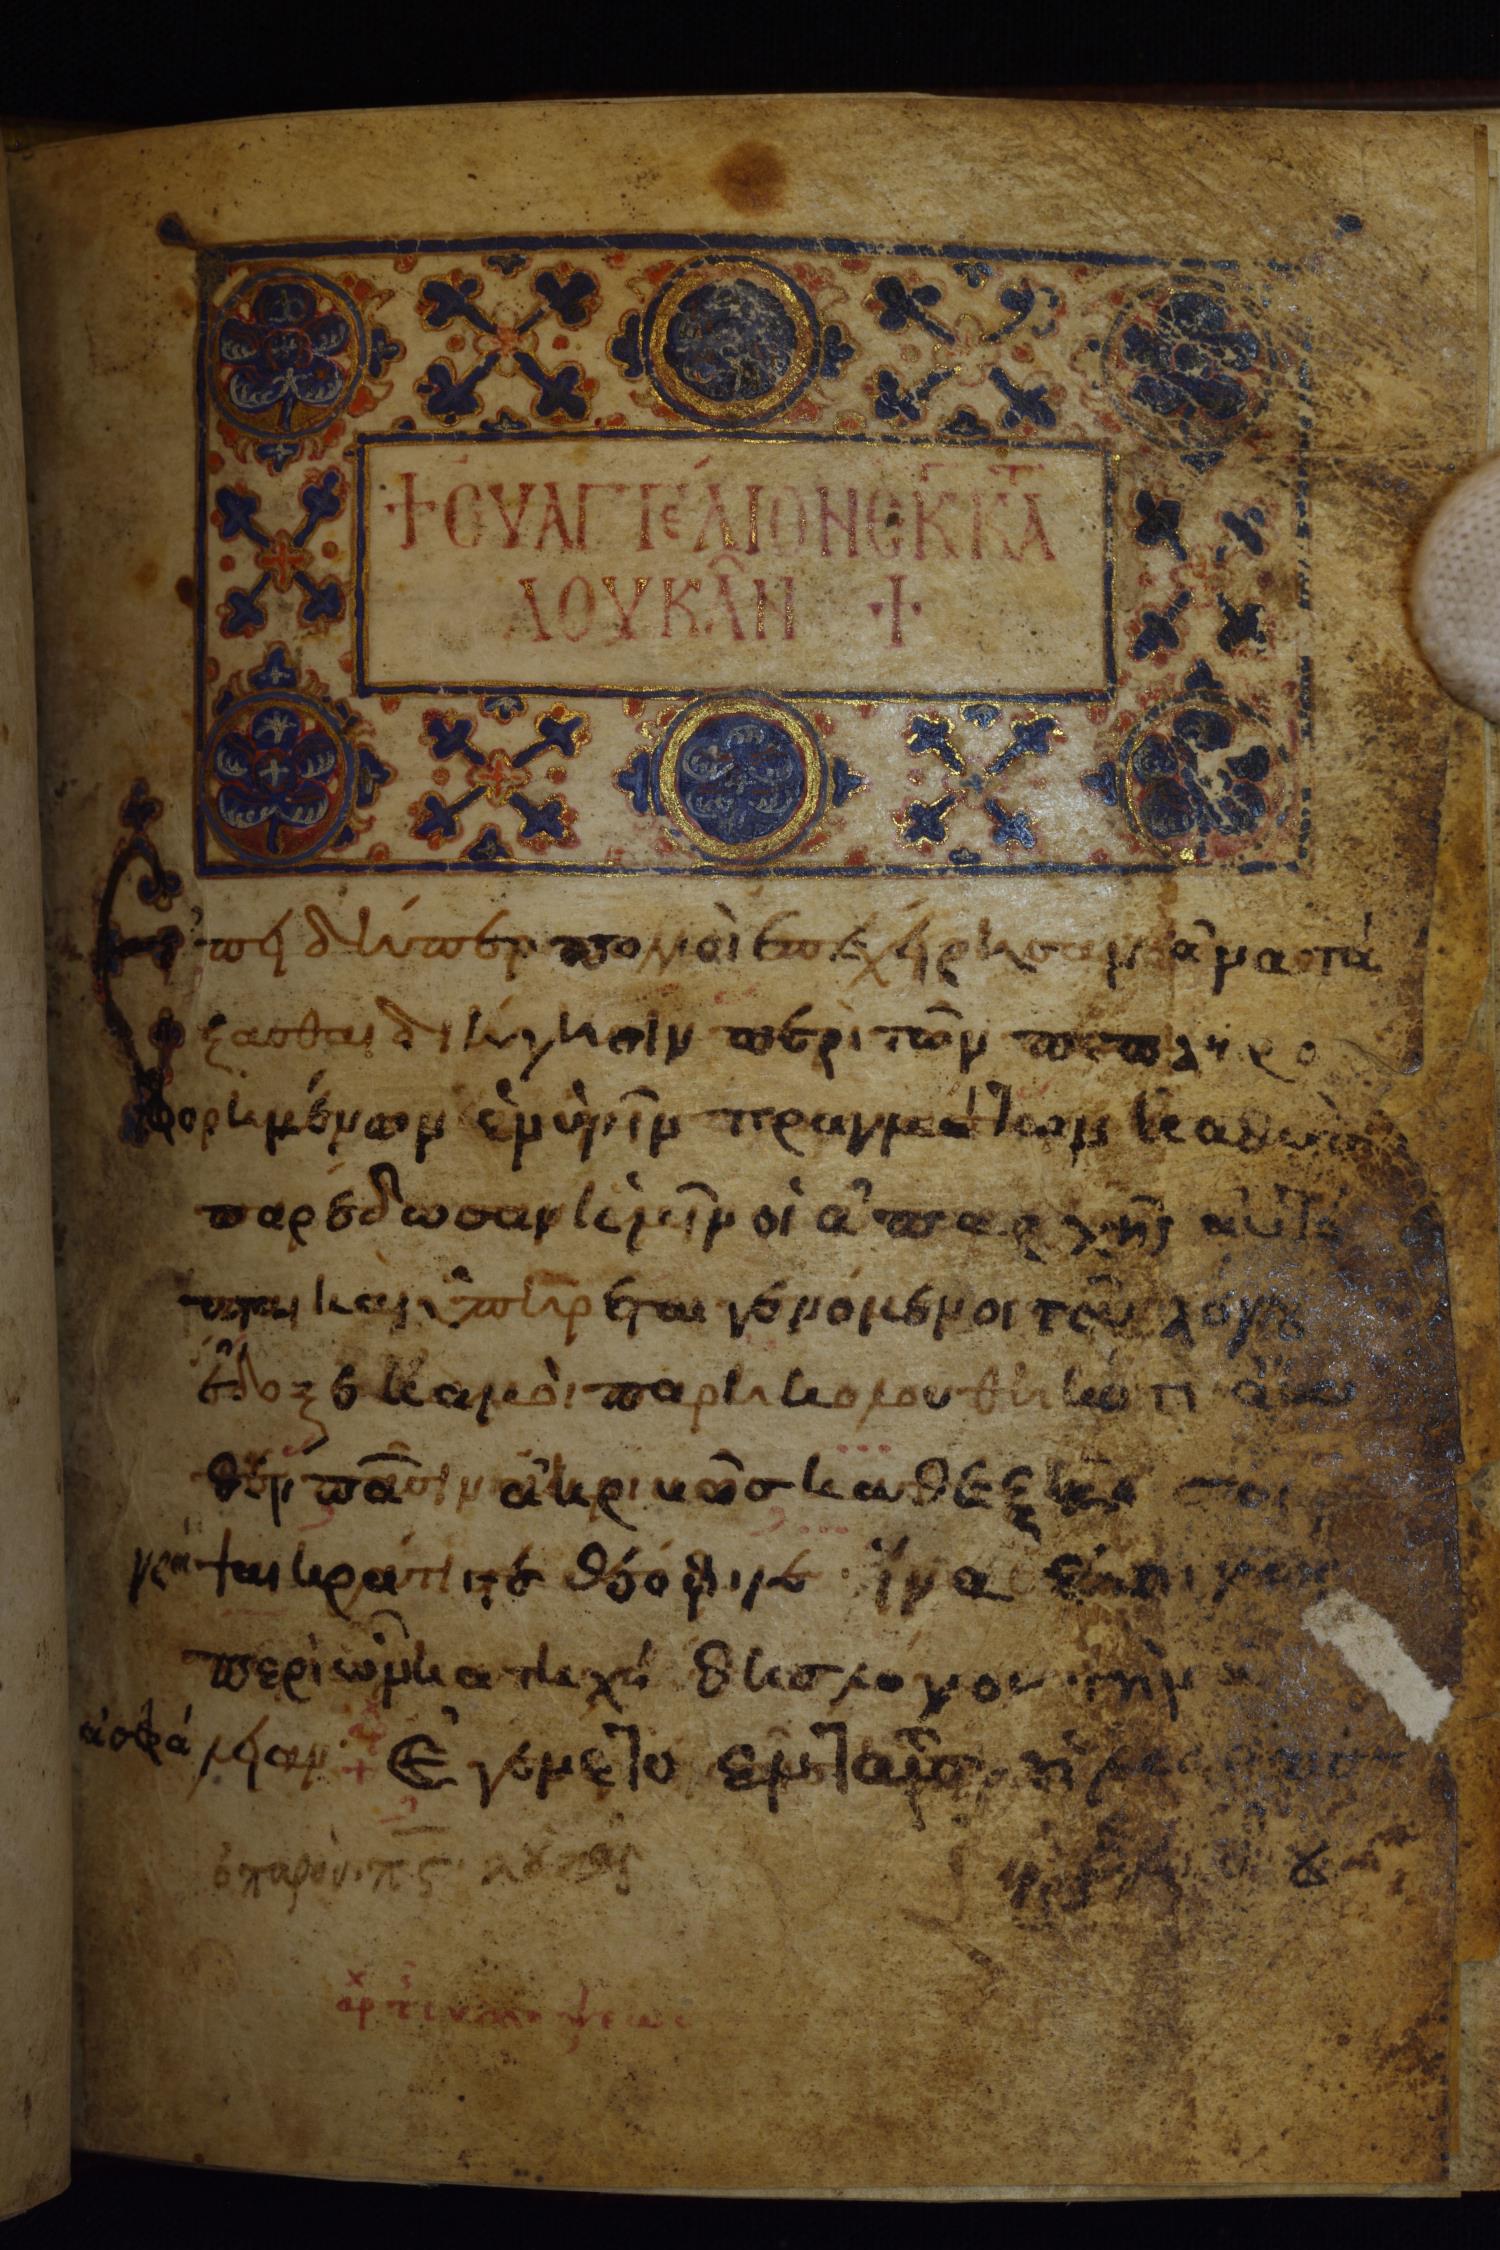 + ΕΥΑΓΓΕΛΙΟΝ ΕΚ ΚΑ
ΛΟΥΚΑΝ +
Ἐπήδήπερ πολλοὶ ἐπεχήρησαν ἀνατά
ξασθαι διήγησιν περὶ τῶν πεπληρο
φορημένων ἐν ἡμῖν πραγμάτων καθὼσ
παρέδωσαν ἡμῖν οἱ ἀπαρχῆς αὐτό
πται καὶ ὑπηρέται γενόμενοι τοῦ λόγου
ἔδοξε καμοὶ παρηκολουθηκότι ἄνω
θεν πᾶσιν ἀκριβῶσ καθεξῆσ σοι
γράψαι κράτιστε θεόφιλε ἵνα
περὶ ὧν κατηχήθησ λόγον τὴν
ἀσφάλήαν Ἐγένετο ἐν ταῖσ ἡμέραισ